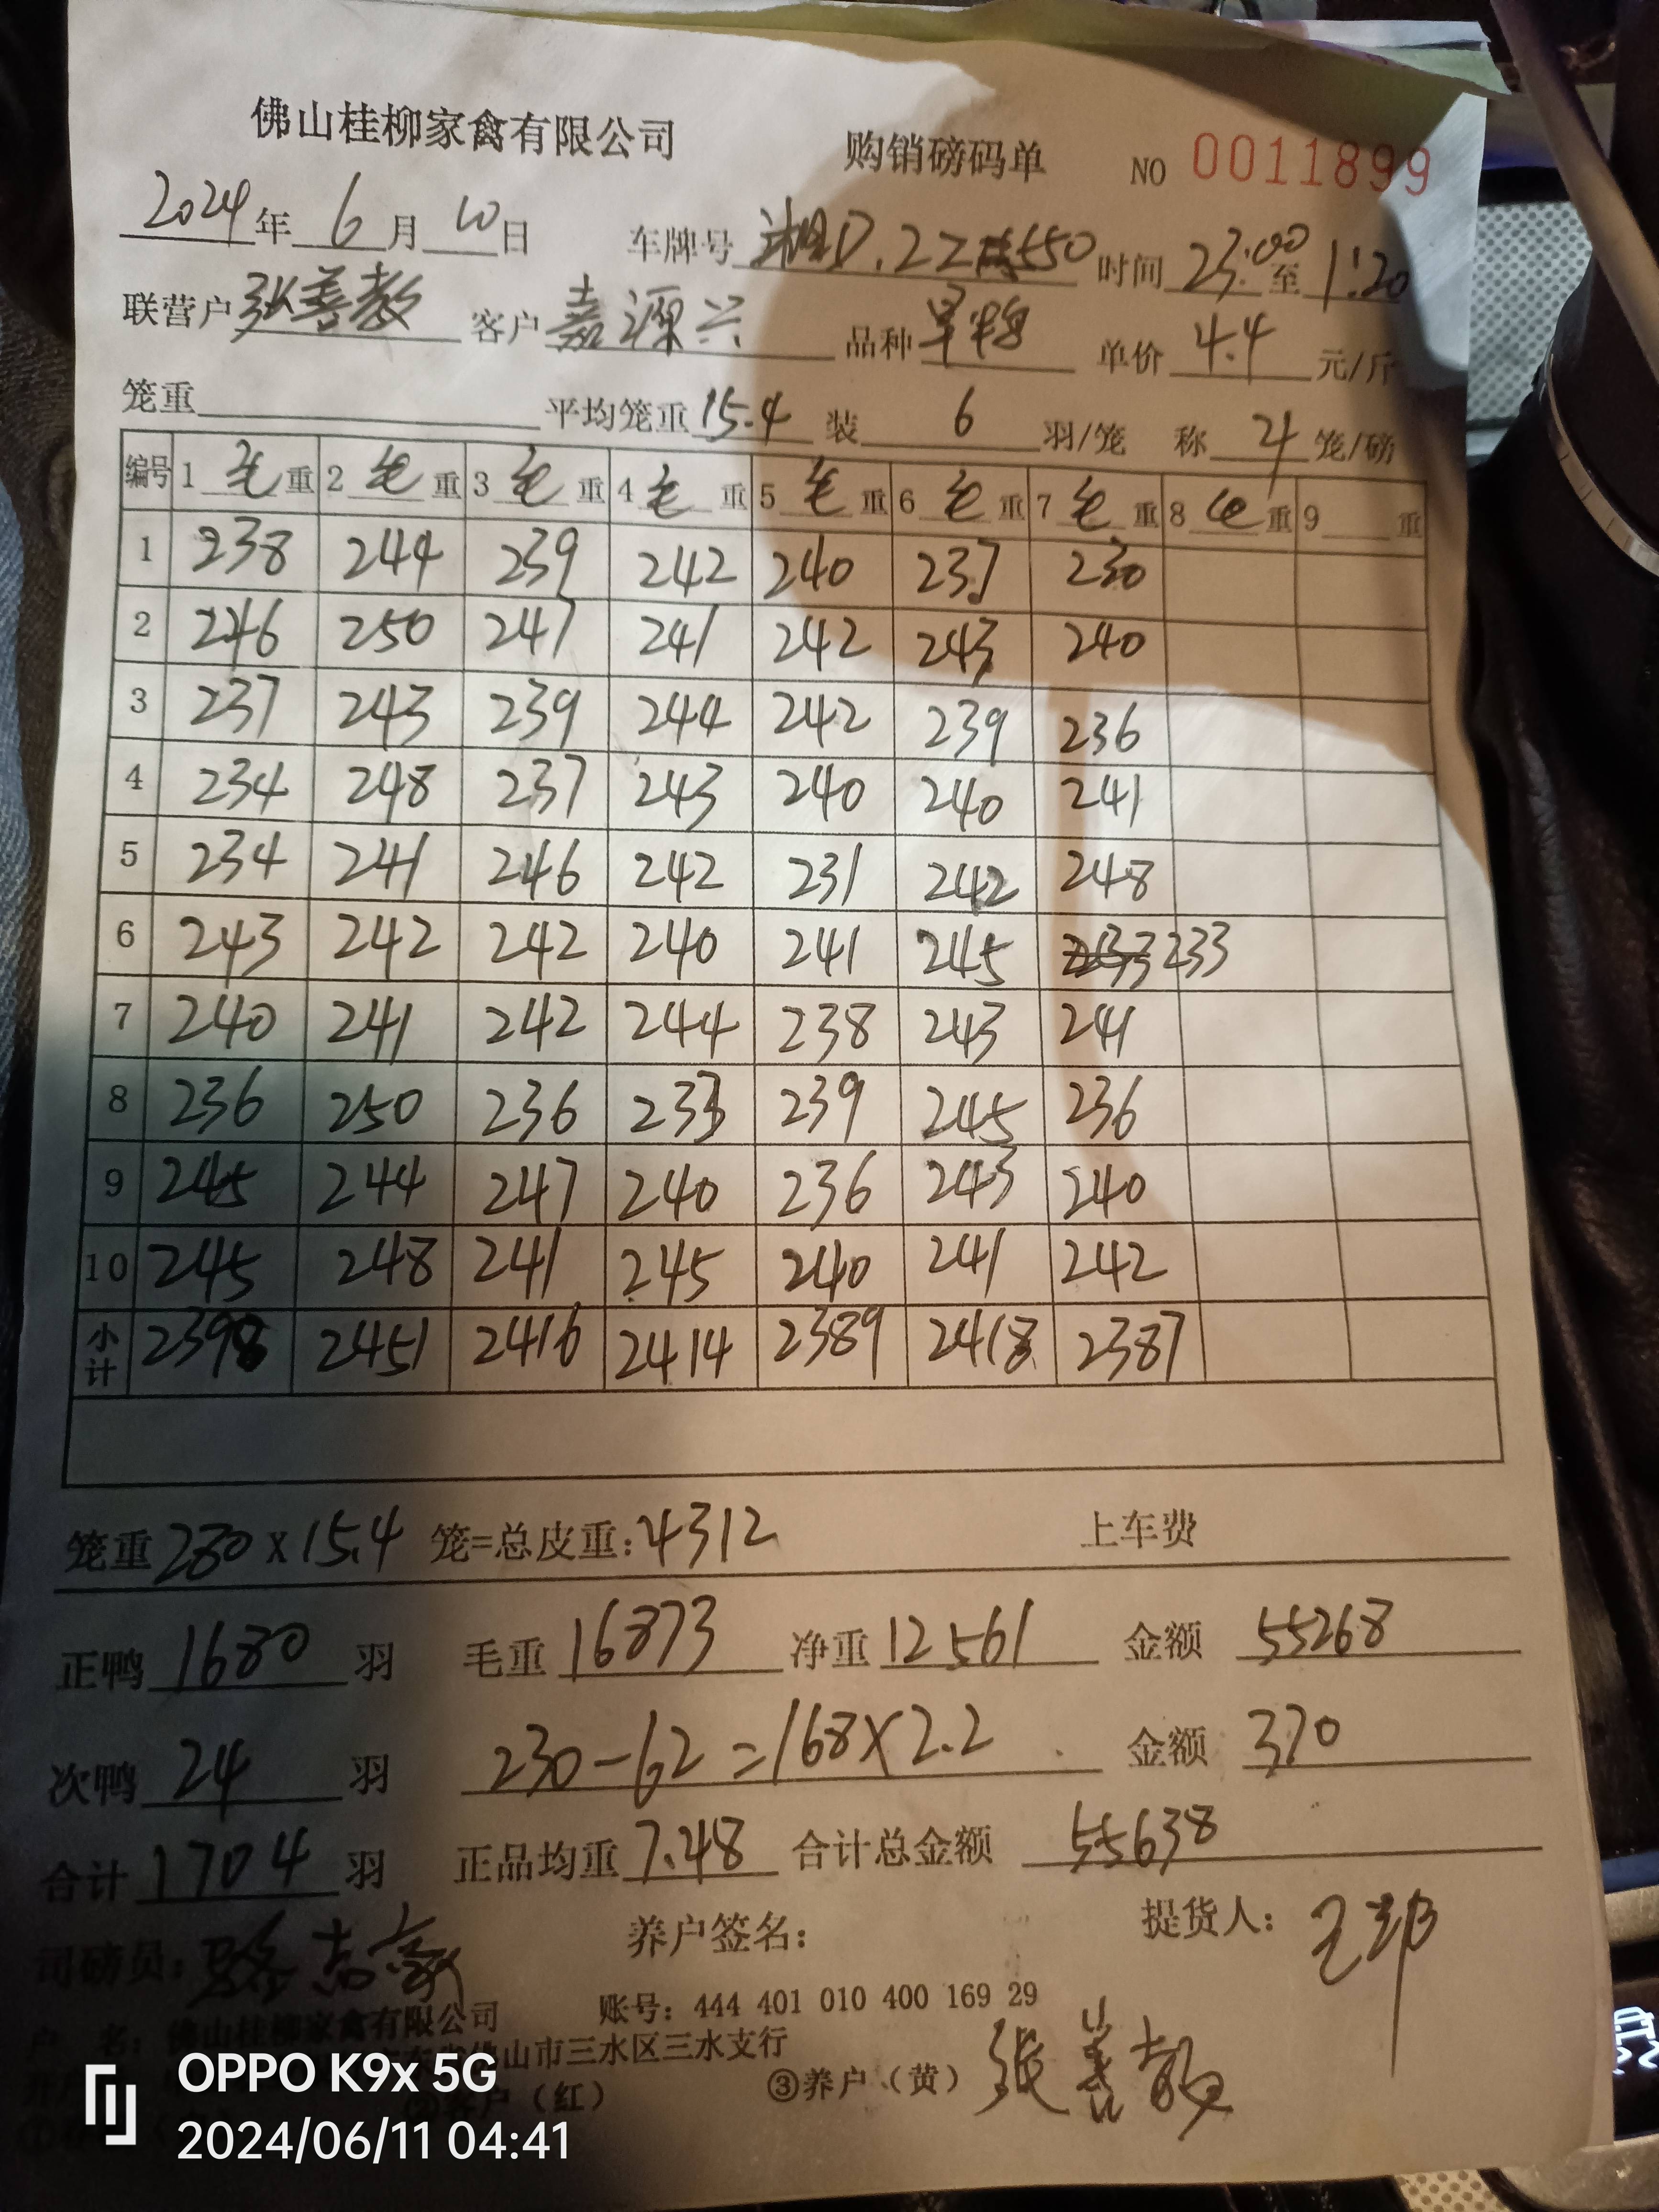 佛山桂柳家禽有限公司 购销磅码单 NO 0011899
2024年 6月 10日 车牌号 湘D. 时间 23:00 至 1:20
联营户 张善教 客户 嘉源兴 品种 单价 4.4 元/斤
笼重 平均笼重 15.4 装 6 羽/笼 称 4 笼/磅
编号 1 毛 重 2 毛 重 3 毛 重 4 毛 重 5 毛 重 6 毛 重 7 毛 重 8 毛 重 9 重
1 238 244 239 242 240 237 230
2 246 250 247 241 242 243 240
3 237 243 239 244 242 239 236
4 234 248 237 243 240 240 241
5 234 241 246 242 231 242 248
6 243 242 242 240 241 245 233
7 240 241 242 244 238 243 241
8 236 250 236 233 239 245 236
9 245 244 247 240 236 243 240
10 245 248 241 245 240 241 242
小计 2398 2451 2416 2414 2389 2418 2387
笼重 280 X 15.4 笼=总皮重: 4312 上车费
正鸭 1680 羽 毛重 16873 净重 12561 金额 55268
次鸭 24 羽 230-62=168X2.2 金额 370
合计 1704 羽 正品均重 7.48 合计总金额 55638
司磅员: 养户签名: 提货人:
户 名: 佛山桂柳家禽有限公司 账号: 444 401 010 400 169 29
佛山市三水区三水支行
客户（红） ③养户（黄） 张善教
OPPO K9x 5G
2024/06/11 04:41